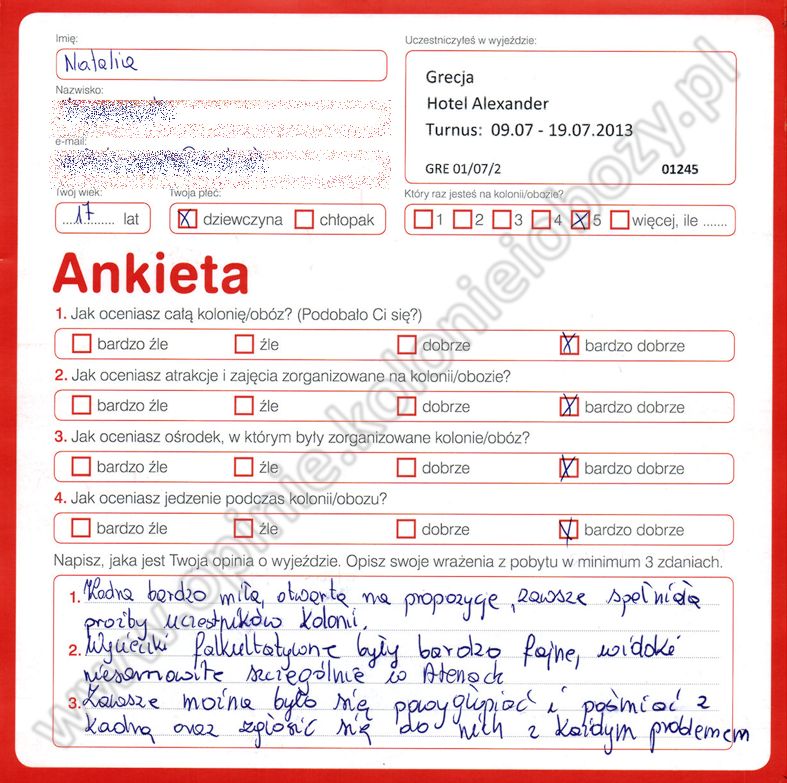 Imię:
Natalia
Nazwisko:
e-mail:
Twój wiek:
17 lat
Twoja płeć:
X dziewczyna chłopak
Uczestniczyłeś w wyjeździe:
Grecja
Hotel Alexander
Turnus: 09.07 - 19.07.2013
GRE 01/07/2 01245
Który raz jesteś na kolonii/obozie?
1 2 3 4 X 5 więcej, ile .......
Ankieta
1. Jak oceniasz całą kolonię/obóz? (Podobało Ci się?)
bardzo źle źle dobrze X bardzo dobrze
2. Jak oceniasz atrakcje i zajęcia zorganizowane na kolonii/obozie?
bardzo źle źle dobrze X bardzo dobrze
3. Jak oceniasz ośrodek, w którym były zorganizowane kolonie/obóz?
bardzo źle źle dobrze X bardzo dobrze
4. Jak oceniasz jedzenie podczas kolonii/obozu?
bardzo źle źle dobrze X bardzo dobrze
Napisz, jaka jest Twoja opinia o wyjeździe. Opisz swoje wrażenia z pobytu w minimum 3 zdaniach.
1. Kadra bardzo miła, otwarta na propozycje, zawsze spełniała
prośby uczestników kolonii.
2. Wycieczki falkultatywne były bardzo fajne, widoki
niesamowite szczególnie w Atenach
3. Zawsze można było się powygłupiać i pośmiać z
kadrą oraz zgłosić się do nich z każdym problemem
www.opinie.kolonieiobozy.pl